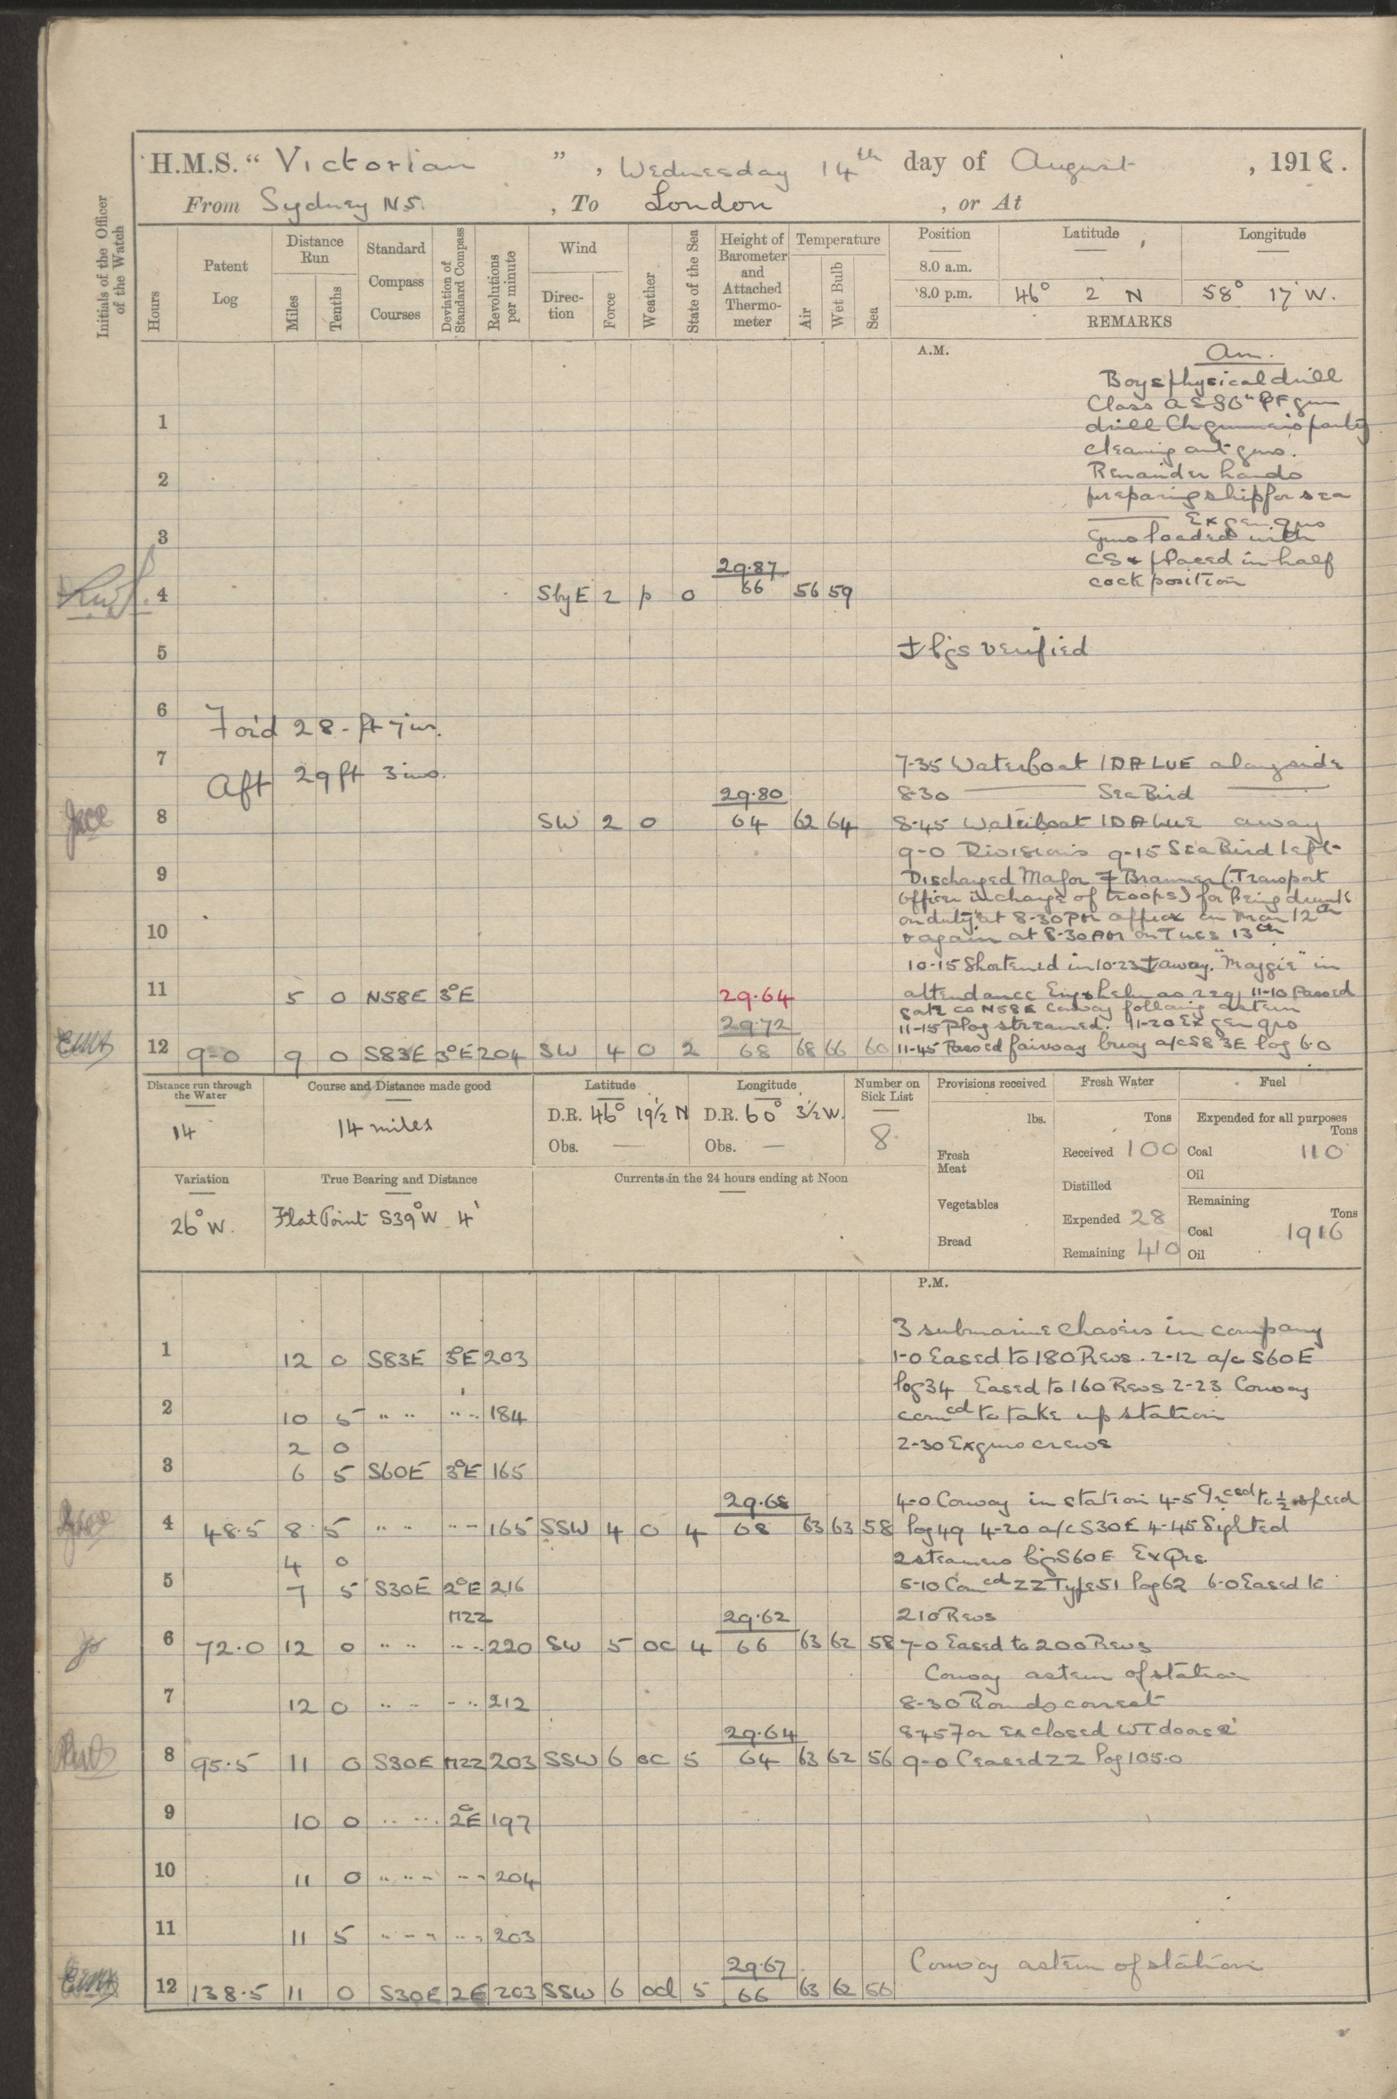 H.M.S. "Victorian", Wednesday 14th day of August, 1918.
From Sydney NS., To London, or At
Initials of the Officer of the Watch
Hours
Patent Log
Distance Run
Miles
Tenths
Standard Compass Courses
Deviation of Standard Compass
Revolutions per minute
Wind
Direction
Force
Weather
State of the Sea
Height of Barometer and Attached Thermometer
Temperature
Air
Wet Bulb
Sea
Position
Latitude
Longitude
8.0 a.m.
8.0 p.m. 46° 2 N 58° 17' W.
REMARKS
A.M.
Am.
Boys physical drill
Class a S 90 gun
drill Ch gunner's party
1
cleaning out guns.
2 Remainder hands
preparing ship for sea
Ex gen qrs
3 Guns loaded with
CS & placed in half
29.87
4 SbyE 2 b 0 66 56 59 cock position
5 bgs verified
6
For'd 28 - ft 7 ins.
7 7-35 Waterboat IDALUE alongside
Aft 29 ft 3 ins.
29.80 8-30 Sea Bird
8 SW 2 0 64 62 64 8-45 Waterboat IDALUE away
9-0 Divisions 9-15 Sea Bird left
9 Discharged Major F Brammer (Transport
Officer in charge of troops) for being drunk
on duty at 8-30 PM on Mon 12th
10 & again at 8-30 AM on Tues 13th
10-15 Shortened in 10-23 away. "Maggie" in
11 5 0 N58E 3°E 29.64 attendance Eng & helm as req 11-10 Passed
gate co N58E Convoy following astern
29.72 11-15 P log streamed. 11-20 Ex gen qrs
12 9-0 9 0 S83E 3°E 204 SW 4 0 2 68 68 66 60 11-45 Passed fairway buoy a/c S83E log 6.0
Distance run through the Water
14
Course and Distance made good
14 miles
Latitude
D.R. 46° 19½ N
Obs. —
Longitude
D.R. 60° 3½ W.
Obs. —
Number on Sick List
8
Provisions received
lbs.
Fresh Meat
Vegetables
Bread
Fresh Water
Tons
Received 100
Distilled
Expended 28
Remaining 410
Fuel
Expended for all purposes
Tons
Coal 110
Oil
Remaining
Tons
Coal 1916
Oil
Variation
26° W.
True Bearing and Distance
Flat Point S39°W 4'
Currents in the 24 hours ending at Noon
P.M.
3 submarine chasers in company
1 12 0 S83E 3°E 203 1-0 Eased to 180 Revs. 2-12 a/c S60E
log 34 Eased to 160 Revs 2-23 Convoy
2 10 5 " " " " 184 comcd to take up station
2 0 2-30 Ex guns crews
3 6 5 S60E 3°E 165
29.68 4-0 Convoy in station 4-5 to ½ speed
4 48.5 8 5 " " " " 165 SSW 4 0 4 68 63 63 58 log 49 4-20 a/c S30E 4-45 Sighted
4 0 2 steamers bg S60E Ex Qrs
5 7 5 S30E 2°E 216 5-10 Comcd ZZ Type 51 log 62 6-0 Eased to
MZZ 29.62 210 Revs
6 72.0 12 0 " " " " 220 SW 5 oc 4 66 63 62 58 7-0 Eased to 200 Revs
Convoy astern of station
7 12 0 " " " " 212 8-30 Rounds correct
29.64 8-45 For ex closed WT doors
8 95.5 11 0 S30E MZZ 203 SSW 6 oc 5 64 63 62 56 9-0 Ceased ZZ log 105.0
9 10 0 " " 2°E 197
10 11 0 " " " " 204
11 11 5 " " " " 203
29.67 Convoy astern of station
12 138.5 11 0 S30E 2E 203 SSW 6 ocl 5 66 63 62 56